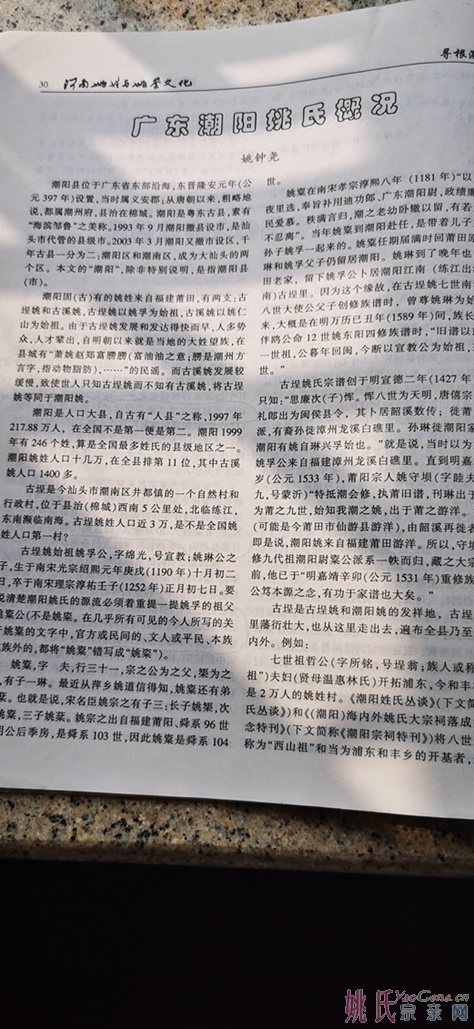 30 河南姚姓与姚崇文化
寻根
广东潮阳姚氏概况
姚钟尧
潮阳县位于广东省东部沿海,东晋隆安元年(公
元397年)设置,当时属义安郡;从唐朝以来,粗略地
说,都属潮州府,县治在棉城。潮阳是粤东古县,素有
“海滨邹鲁”之美称。1993年9月潮阳撤县设市,是汕
头市代管的县级市。2003年3月潮阳又撤市设区,千
年古县一分为二:潮阳区和潮南区,成为大汕头的两
个区。本文的“潮阳”,除非特别说明,是指潮阳县
(市)。
潮阳固(古)有的姚姓来自福建莆田,有两支:古
埕姚和古溪姚,古埕姚以姚孚为始祖,古溪姚以姚仁
山为始祖。由于古埕姚发展和发达得快而早,人多势
众,人才辈出,自明朝以来就是当地的大姓望族,在
县城有“萧姚赵郑富膀膀(富油油之意;膀是潮州方
言字,指动物脂肪),……”的民谣。而古溪姚发展较
缓慢,致使世人只知古埕姚而不知有古溪姚,将古埕
姚等同于潮阳姚。
潮阳是人口大县,自古有“人县”之称,1997年
217.88万人,在全国不是第一便是第二。潮阳1999
年有246个姓,算是全国最多姓氏的县级地区之一。
潮阳姚姓人口十几万,在全县排第11位,其中古溪
姚人口1400多。
古埕是今汕头市潮南区井都镇的一个自然村和
行政村,位于县治(棉城)西南5公里处,北临练江,
东南濒临南海。古埕姚姓人口近3万,是不是全国姚
姓人口第一村?
古埕姚始祖姚孚公,字绵光,号宣教;姚琳公之
子,生于南宋光宗绍熙元年庚戌(1190年)十月初二
日,卒于南宋理宗淳祐壬子(1252年)正月初七日。要
说清楚潮阳姚氏的源流必须着重提一提姚孚的祖父
姚寀公(不是姚棐)。在几乎所有可见的今人所写的关
于姚寀的文字中,官方或民间的、文人或平民、本族
或族外的,都将“姚寀”错写成“姚棐”。
姚寀,字 夫,行三十一,宗之公为之父,榘为之
,有子一琳。最近从萍乡姚道信得知,姚寀还有弟
棐。也就是说,宋名臣姚宗之有子三:长子姚榘,次
姚寀,三子姚棐。姚宗之出自福建莆阳、舜系96世
明公后季房,是舜系103世,因此姚寀是舜系104
世。
姚寀在南宋孝宗淳熙八年(1181年)“以
夜里选,奉旨补用迪功郎、广东潮阳尉,政绩廉
民爱慕。秩满言归,潮之老幼卧辙以留,有若
不忍离”。当年姚寀到潮阳赴任,是带着儿子
孙子姚孚一起来的。姚寀任期届满时回莆田原
琳和姚孚父子仍留居潮阳。姚琳到了晚年也
田老家,留下姚孚公卜居潮阳江南(练江出
南)古埕里。因为这个缘故,在古埕姚七世南
八世大使公父子创修族谱时,曾尊姚琳为始
来,大概是在明万历已丑年(1589年)间,族长
伴鸥公命12世姚东阳四修族谱时,“旧谱以
一世祖,公暮年回闽,今断以宣教公为始祖,
世。
古埕姚氏宗谱创于明宣德二年(1427年
只知:“思廉次(子)恽。恽八世为天明,唐僖宗
礼郎出为闽侯县令,其卜居韶溪数传;徙莆
派,有裔孙徙漳州龙溪白礁里。孙琳徙潮阳家
潮阳有姚自琳兴孚始也。”就是说,当时以为
姚孚公来自福建漳州龙溪白礁里。直到明嘉
岁(公元1533年),莆阳宗人姚守埙(字睦夫
九,号蒙沂)“特抵潮会修,执莆旧谱,刊琳出于
为莆之九世,始知我潮之姚,出于莆之游洋。
(可能是今莆田市仙游县游洋),由韶溪再徙者
即是说,潮阳姚来自福建莆田游洋。所以,守埙
修九代祖潮阳尉寀公派系一帙而归,藏之大宗
前,他已于“明嘉靖辛卯(公元1531年)重修族
公笃本源之念,有功于家谱也大矣。”
古埕是古埕姚和潮阳姚的发祥地,古埕
里蕃衍壮大,也从这里走出去,遍布全县乃至
内外。例如:
七世祖哲公(字所铭,号埕翁;族人或称
祖”)夫妇(贤母温惠林氏)开拓浦东,今和丰
是2万人的姚姓村。《潮阳姓氏丛谈》(下文简
氏丛谈》)和《(潮阳)海内外姚氏大宗祠落成
念特刊》(下文简称《潮阳宗祠特刊》)将八世
称为“西山祖”和当为浦东和丰乡的开基者,
YaoGens.cn
姚氏宗亲网